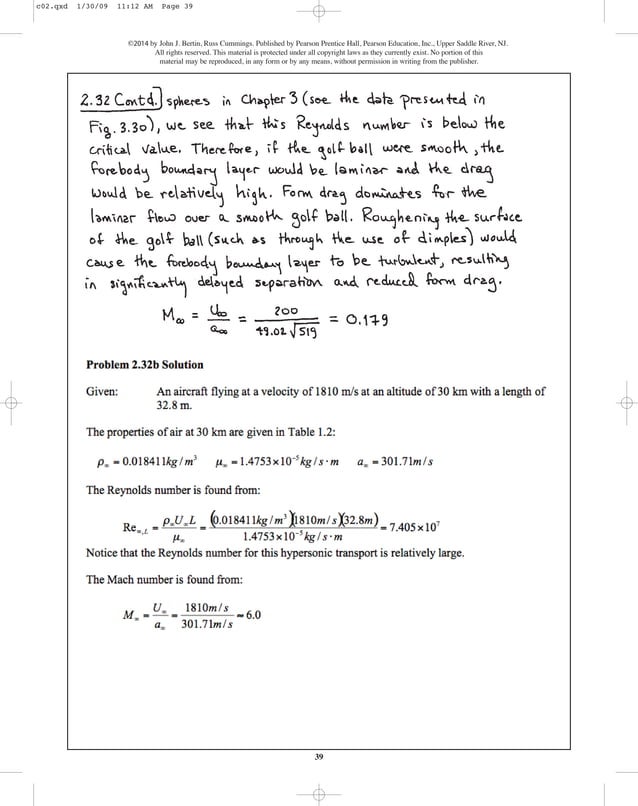 c02.qxd 1/30/09 11:12 AM Page 39
©2014 by John J. Bertin, Russ Cummings. Published by Pearson Prentice Hall, Pearson Education, Inc., Upper Saddle River, NJ.
All rights reserved. This material is protected under all copyright laws as they currently exist. No portion of this
material may be reproduced, in any form or by any means, without permission in writing from the publisher.
2.32 Contd.] spheres in Chapter 3 (see the data presented in
Fig. 3.30), we see that this Reynolds number is below the
critical value. Therefore, if the golf ball were smooth, the
forebody boundary layer would be laminar and the drag
would be relatively high. Form drag dominates for the
laminar flow over a smooth golf ball. Roughening the surface
of the golf ball (such as through the use of dimples) would
cause the forebody boundary layer to be turbulent, resulting
in significantly delayed separation and reduced form drag.
M∞ = U∞/a∞ = 200/(49.02√519) = 0.179
Problem 2.32b Solution
Given: An aircraft flying at a velocity of 1810 m/s at an altitude of 30 km with a length of
32.8 m.
The properties of air at 30 km are given in Table 1.2:
ρ∞ = 0.018411kg/m³ μ∞ = 1.4753×10⁻⁵ kg/s·m a∞ = 301.71m/s
The Reynolds number is found from:
Re∞,L = ρ∞U∞L/μ∞ = (0.018411kg/m³)(1810m/s)(32.8m)/(1.4753×10⁻⁵ kg/s·m) = 7.405×10⁷
Notice that the Reynolds number for this hypersonic transport is relatively large.
The Mach number is found from:
M∞ = U∞/a∞ = 1810m/s/301.71m/s = 6.0
39